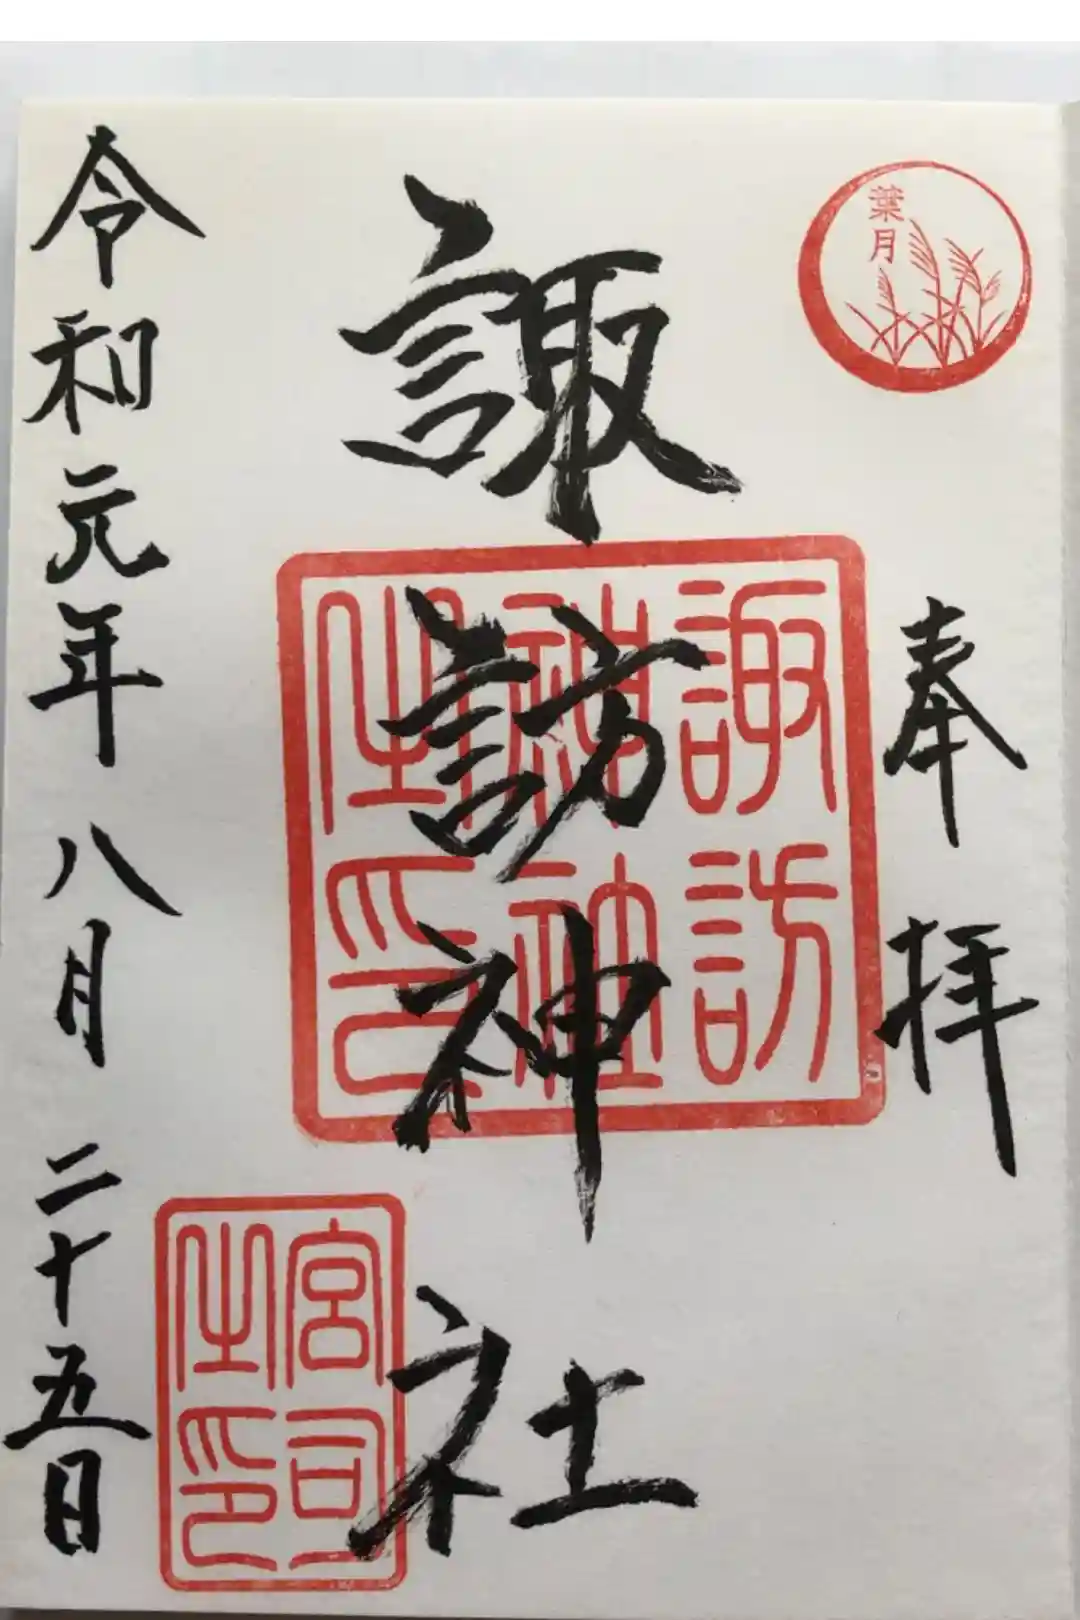 葉月
奉拝
諏訪神社
諏訪
神社
之印
宮司
之印
令和元年八月二十五日